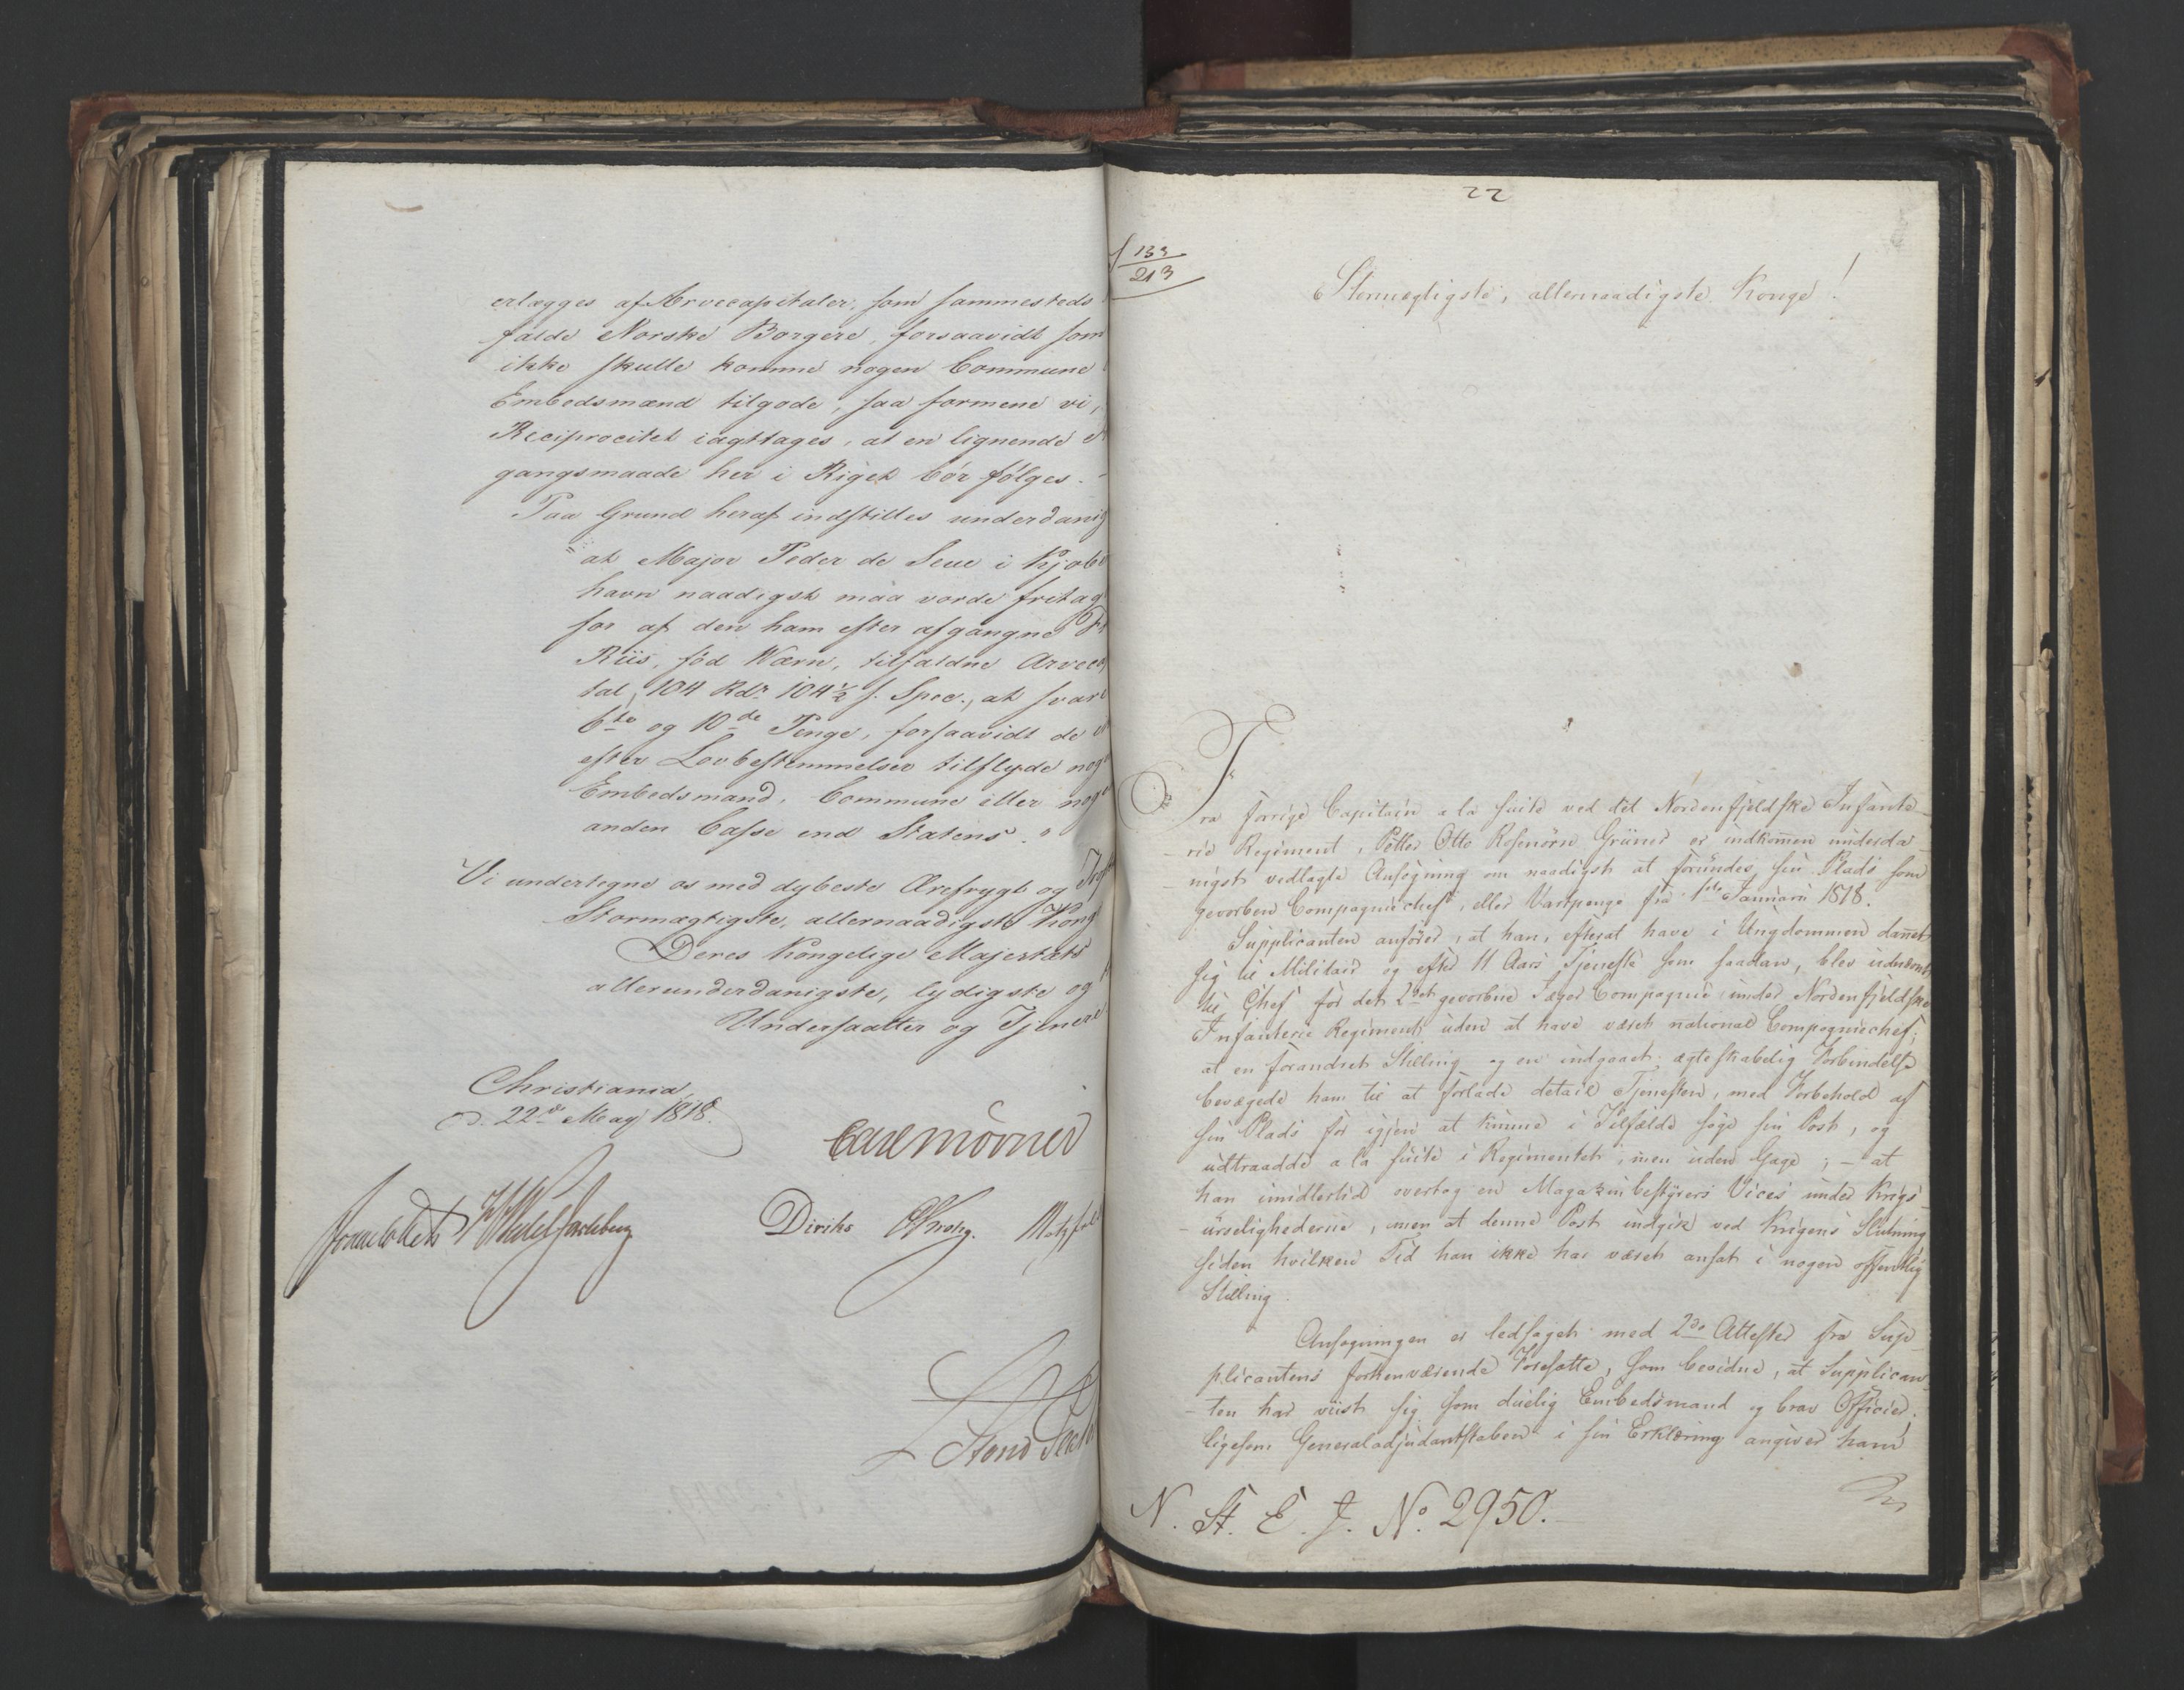 erlægges af Arvecapitaler, som sammesteds
falde Norske Borgere, forsaavidt som
ikke skulle komme nogen Commune
Embedsmænd tilgode, saa formene vi,
Reciprocitet iagttages, at en lignende
gangsmaade her i Riget bør følges.
Paa Grund heraf indstilles underdanig
"at Major Peder de Seue i Kjøbe
havn naadigst maa vorde fritag
for af den ham efter afgangne
Riis, fød Wærn, tilfaldne Arveca
tal, 104 Rdr 104½ s. Spec., at svare
6te og 10de Penge, forsaavidt de
efter Lovbestemmelser tilflyde noge
Embedsmand, Commune eller noge
anden Casse end Statens."
Vi undertegne os med dybeste Ærefrygt og
Stormægtigste, allernaadigste Kong
Deres Kongelige Majestæts
allerunderdanigste, lydigste og
Undersaatter og Tjenere
Christiania,
d. 22de May 1818.
Carl Mörner
Sommerfeldt Wedel Jarlsberg Diriks Krohg. Motzfeldt
22
133
213
Stormægtigste, allernaadigste Konge!
Fra forrige Capitain a la suite ved det Nordenfjeldske Infante-
rie Regiment, Petter Otto Rosenörn Grüner er indkommen underda-
nigst vedlagte Ansøgning om naadigst at forundes sin Plads som
gevorben Compagniechef, eller Vartpenge fra 1ste Januarii 1818.
Supplicanten anfører, at han, efterat have i Ungdommen dannet
sig til Militair og efter 11 Aars Tjeneste som saadan, blev udnævnt
til Chef for det 2det gevorbne Jæger Compagnie under Nordenfjeldske
Infanterie Regiment, uden at have været national Compagniechef;
at en forandret Stilling og en indgaaet ægteskabelig Forbindelse
bevægede ham til at forlade detail Tjenesten, med Forbehold af
sin Plads for igjen at kunne i Tilfælde søge sin Post, og
udtraadde a la suite i Regimentet, men uden Gage; – at
han imidlertid overtog en Magazinbestyrers Vices under Krigs-
urolighederne, men at denne Post indgik ved Krigens Slutning
siden hvilken Tid han ikke har været ansat i nogen offentlig
Stilling.
Ansøgningen er ledsaget med 2de Attester fra Sup-
plicantens forhenværende Foresatte, som bevidne, at Supplican-
ten har viist sig som duelig Embedsmand og brav Officier;
ligesom Generaladjudantstaben i sin Erklæring angiver ham
N. St. E. J. No. 2950.